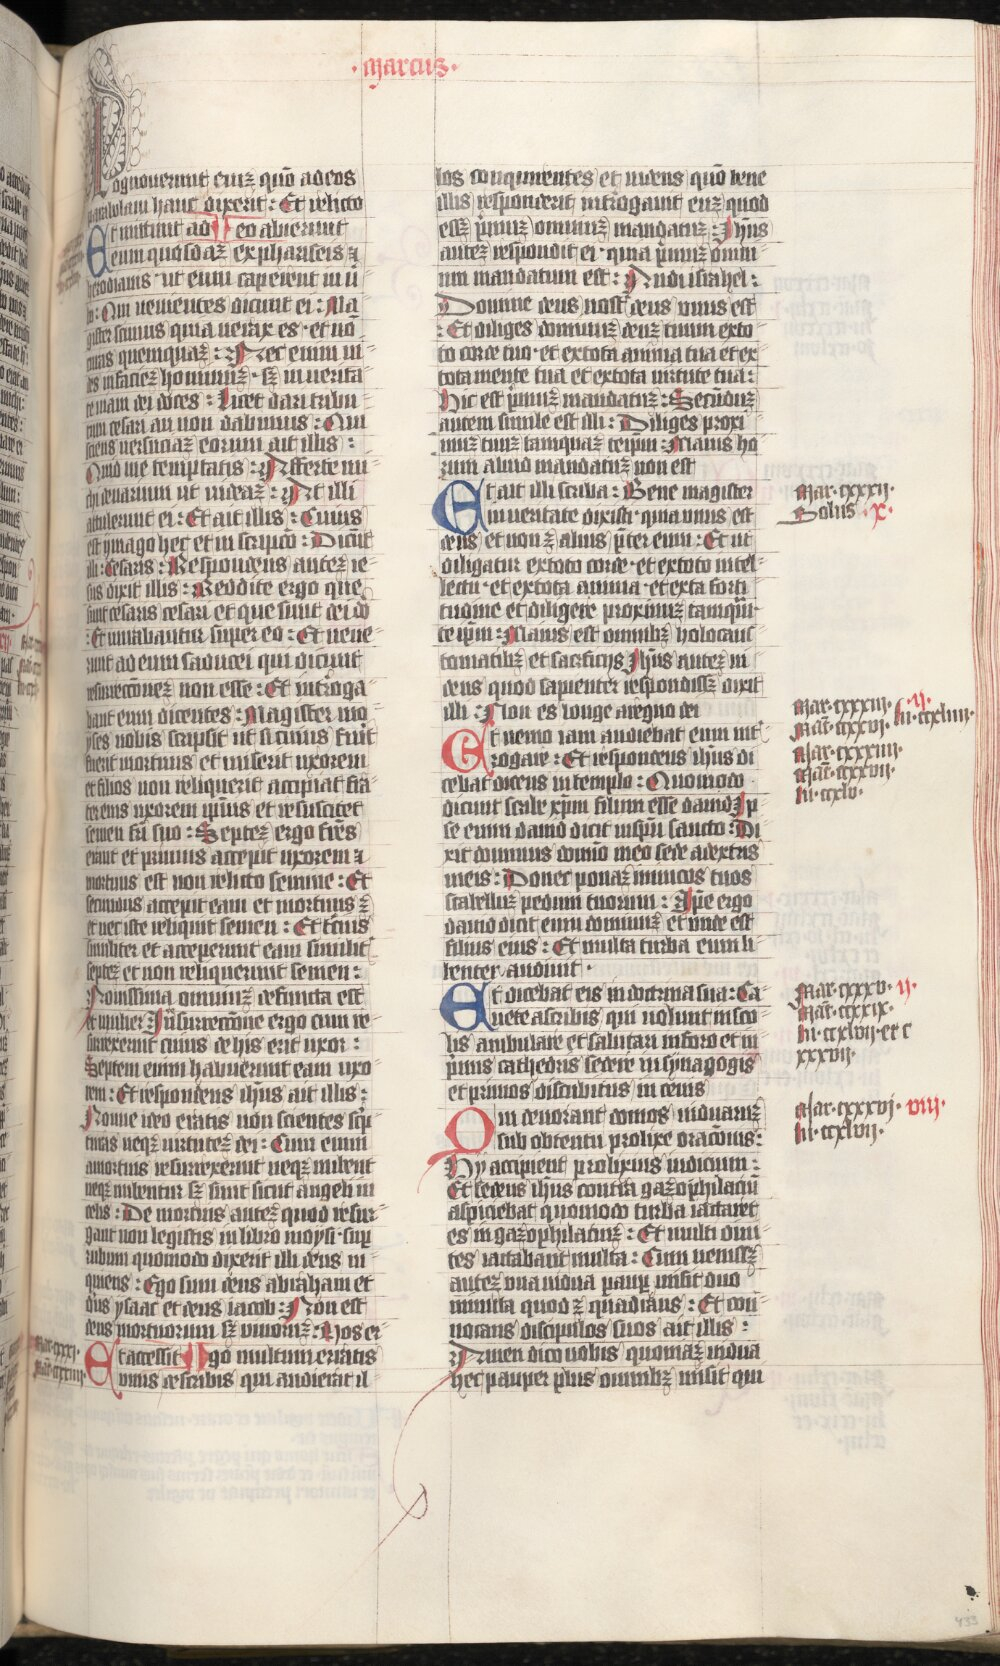 ·Marcus·
Cognouerunt eniz quō ad eos
parabolam hanc dixerit : Et relicto
Et mittunt ad ¶ eo abierunt
eum quosdaz ex phariseis ⁊
herodianis · ut eum caperent in ū
bo : Qui uenientes dicunt ei : Ma
gister scimus quia uerax es · et nō
curas quemquaz : Nec enim ui
des in faciez hominuz · sz in uerita
te uiam dei doces : Licet dari tribu
tum cesari an non dabimus : Qui
sciens uersuciaz eorum ait illis :
Quid me temptatis : Afferte mi
chi denarium ut uideaz : At illi
attulerunt ei : Et ait illis : Cuius
est ymago hec et inscriptio : Dicūt
illi : Cesaris : Respondens autez ie
sus dixit illis : Reddite ergo que
sunt cesaris cesari et que sunt dei dō
: Et mirabantur super eo : Et uene
runt ad eum saducei qui dicunt
resurrectionez non esse : Et introga
bant eum dicentes : Magister mo
yses nobis scripsit ut si cuius frat
fuerit mortuus et miserit uxorem
et filios non reliquerit accipiat fra
ter eius uxorem ipsius et resuscitet
semen fri suo : Septez ergo fres
erant et primus accepit uxorem ⁊
mortuus est non relicto semine : Et
secundus accepit eam et mortuus ē
et nec iste reliquit semen : Et tcius
similiter et acceperunt eam similit
septez et non reliquerunt semen :
Nouissima omniuz defuncta est
et mulier : In resurrectione ergo cum re
surrexerint cuius de his erit uxor :
Septem enim habuerunt eam uxo
rem : Et respondens ihus ait illis :
Nonne ideo eratis non scientes scp
turas neqz uirtutez dei : Cum enim
a mortuis resurrexerint neqz nubent
neqz nubentur sz sunt sicut angeli in
celis : De mortuis autez quod resur
gant non legistis in libro moysi sup
rubum quomodo dixerit illi deus in
quiens : Ego sum deus abraham et
deus ysaac et deus iacob : Non est
deus mortuorum sz uiuoruz : Uos er
Et accessit ¶ go multum erratis
unus de scribis qui audierat il
Mar·cxxxi·
Mat·ccxxiiij·
los conquirentes et uidens quō bene
illis responderit introgauit euz quod
essz pmuz omniuz mandatuz : Ihus
autez respondit ei · quia pmuz omni
um mandatum est : Audi israhel :
Domine deus nost deus unus est
: Et diliges dominuz deuz tuum ex to
to corde tuo · et ex tota anima tua et ex
tota mente tua et ex tota uirtute tua :
Hic est pmuz mandatuz : Secunduz
autem simile est illi : Diliges proxi
muz tuuz tamquaz teipm : Maius ho
rum aliud mandatuz non est
Et ait illi scriba : Bene magister
in ueritate dixisti · quia unus est
deus et non ē alius pter eum : Et ut
diligatur ex toto corde · et ex toto intel
lectu · et ex tota anima · et exta forti
tudine et diligere proximuz tamquā
te ipm : Maius est omnibz holocaus
tomatibz et sacrificijs Ihus autez ui
dens quod sapienter respondissz dixit
illi : Non es longe a regno dei
Et nemo iam audebat eum int
rogare : Et respondens ihus di
cebat docens in templo : Quomodo
dicunt scribe xpm filium esse dauid Ip
se enim dauid dicit in spu sancto : Di
xit dominus domino meo sede a dextris
meis : Donec ponaz inimicos tuos
scabelluz pedum tuorum : Ipe ergo
dauid dicit eum dominuz et unde est
filius eius : Et multa turba eum li
benter audiuit ·
Et dicebat eis in doctrina sua : Ca
uete a scribis qui uolunt in sto
lis ambulare et salutari in foro et in
primis cathedris sedere in synagogis
et primos discubitus in cenis
Qui deuorant domos uiduaruz
sub obtentu prolixe oracionis :
Hij accipient prolixius iudicium :
Et sedens ihus contra gazophilaciū
aspiciebat quomodo turba iactaret
es in gazophilatiuz : Et multi diui
tes iactabant multa : Cum uenissz
autez una uidua paup misit duo
minuta quod ē quadrans : Et con
uocans discipulos suos ait illis :
Amen dico uobis quoniaz uidua
hec pauper plus omnibz misit qui
Mar·cxxxij·
Solus · x·
Mar·cxxxiij· ·ij·
Mat·ccxxvj· lu·ccxliiij·
Mar·cxxxiiij·
Mat·ccxxvij·
lu·ccxlv·
Mar·cxxxv· ij·
Mat·ccxxix·
lu·ccxlvij·et c
xxxvij·
Mar·cxxxvj· viij·
lu·ccxlvij·
433